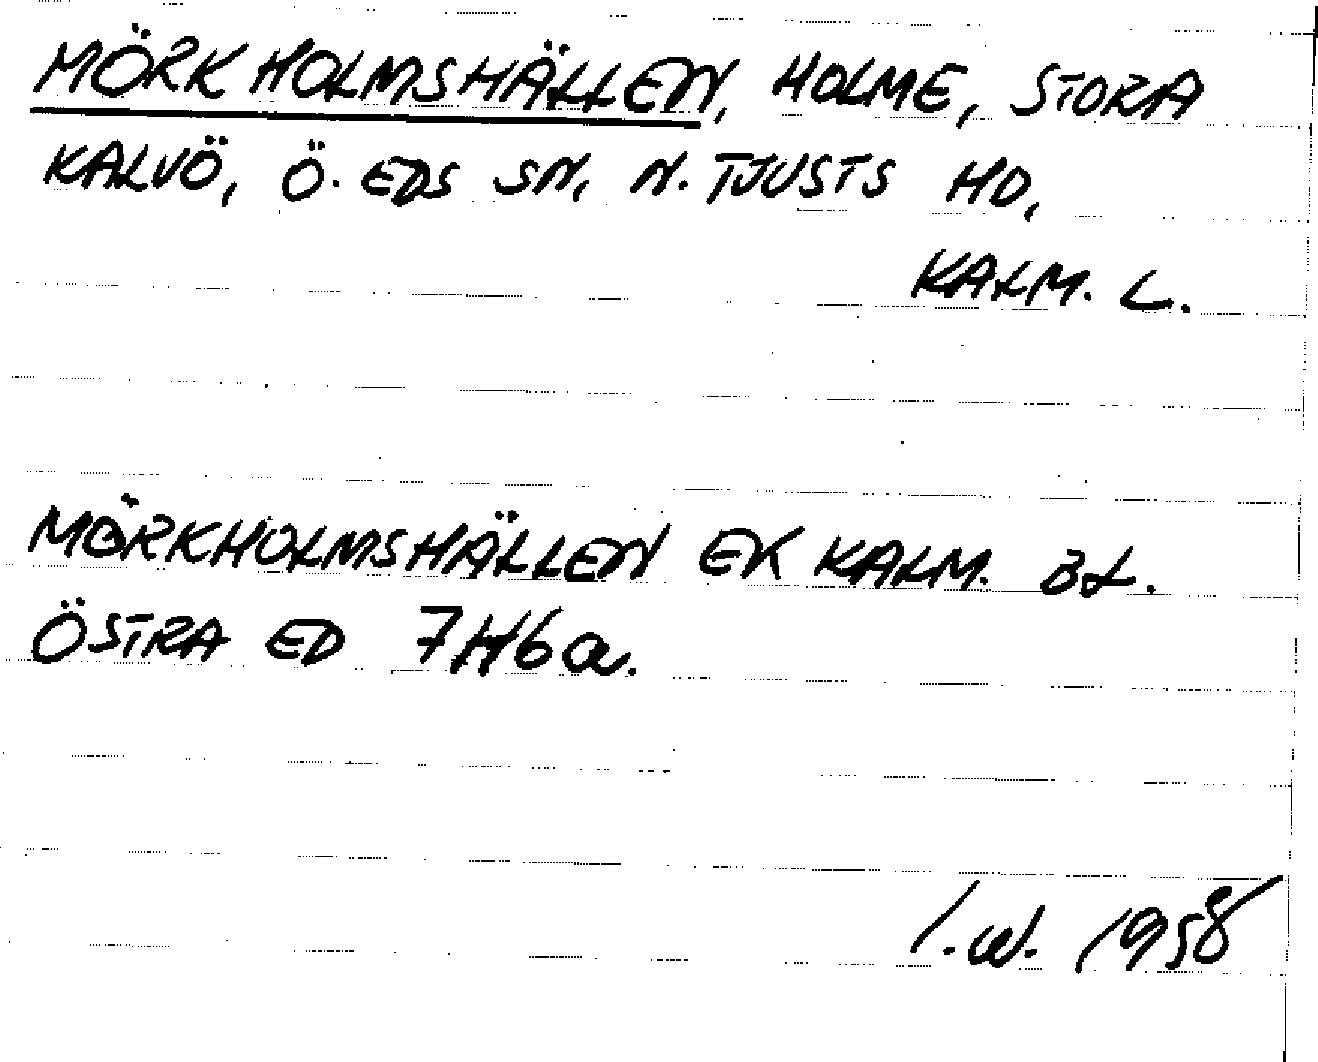 MÖRKHOLMSHÄLLEN, HOLME, STORA
KALVÖ, Ö. EDS SN, N. TJUSTS HD,
KALM. L.
MÖRKHOLMSHÄLLEN EK KALM. BL.
ÖSTRA ED 7H6a.
I.W. 1958